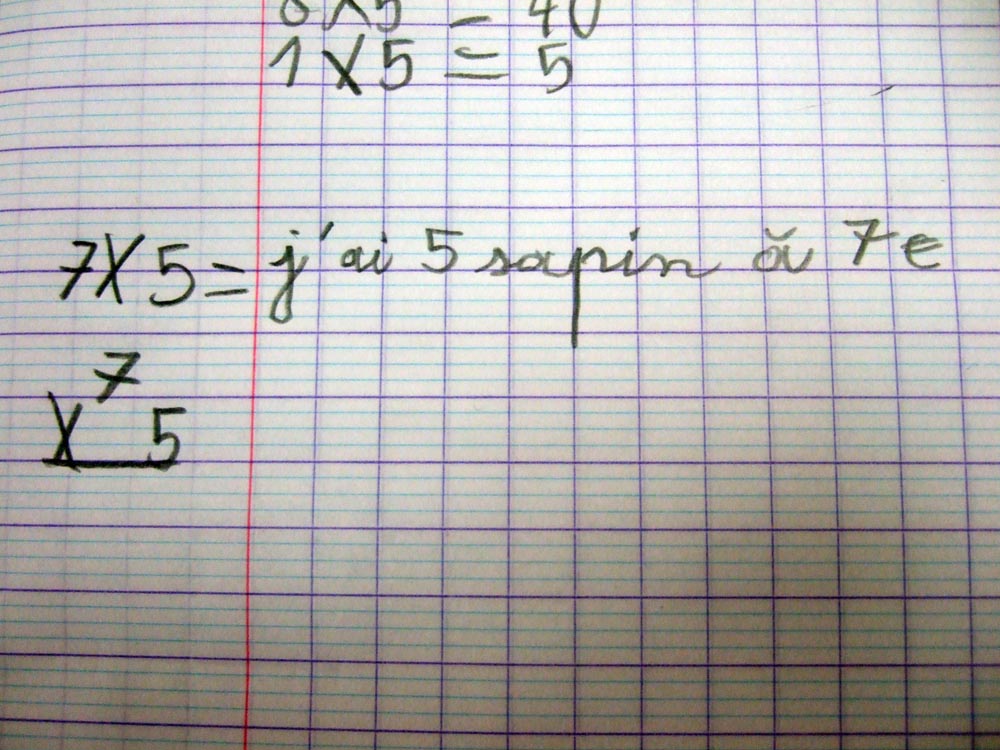 8 X 5 = 40
1 X 5 = 5
7 X 5 = j'ai 5 sapin à 7 €
7
X 5